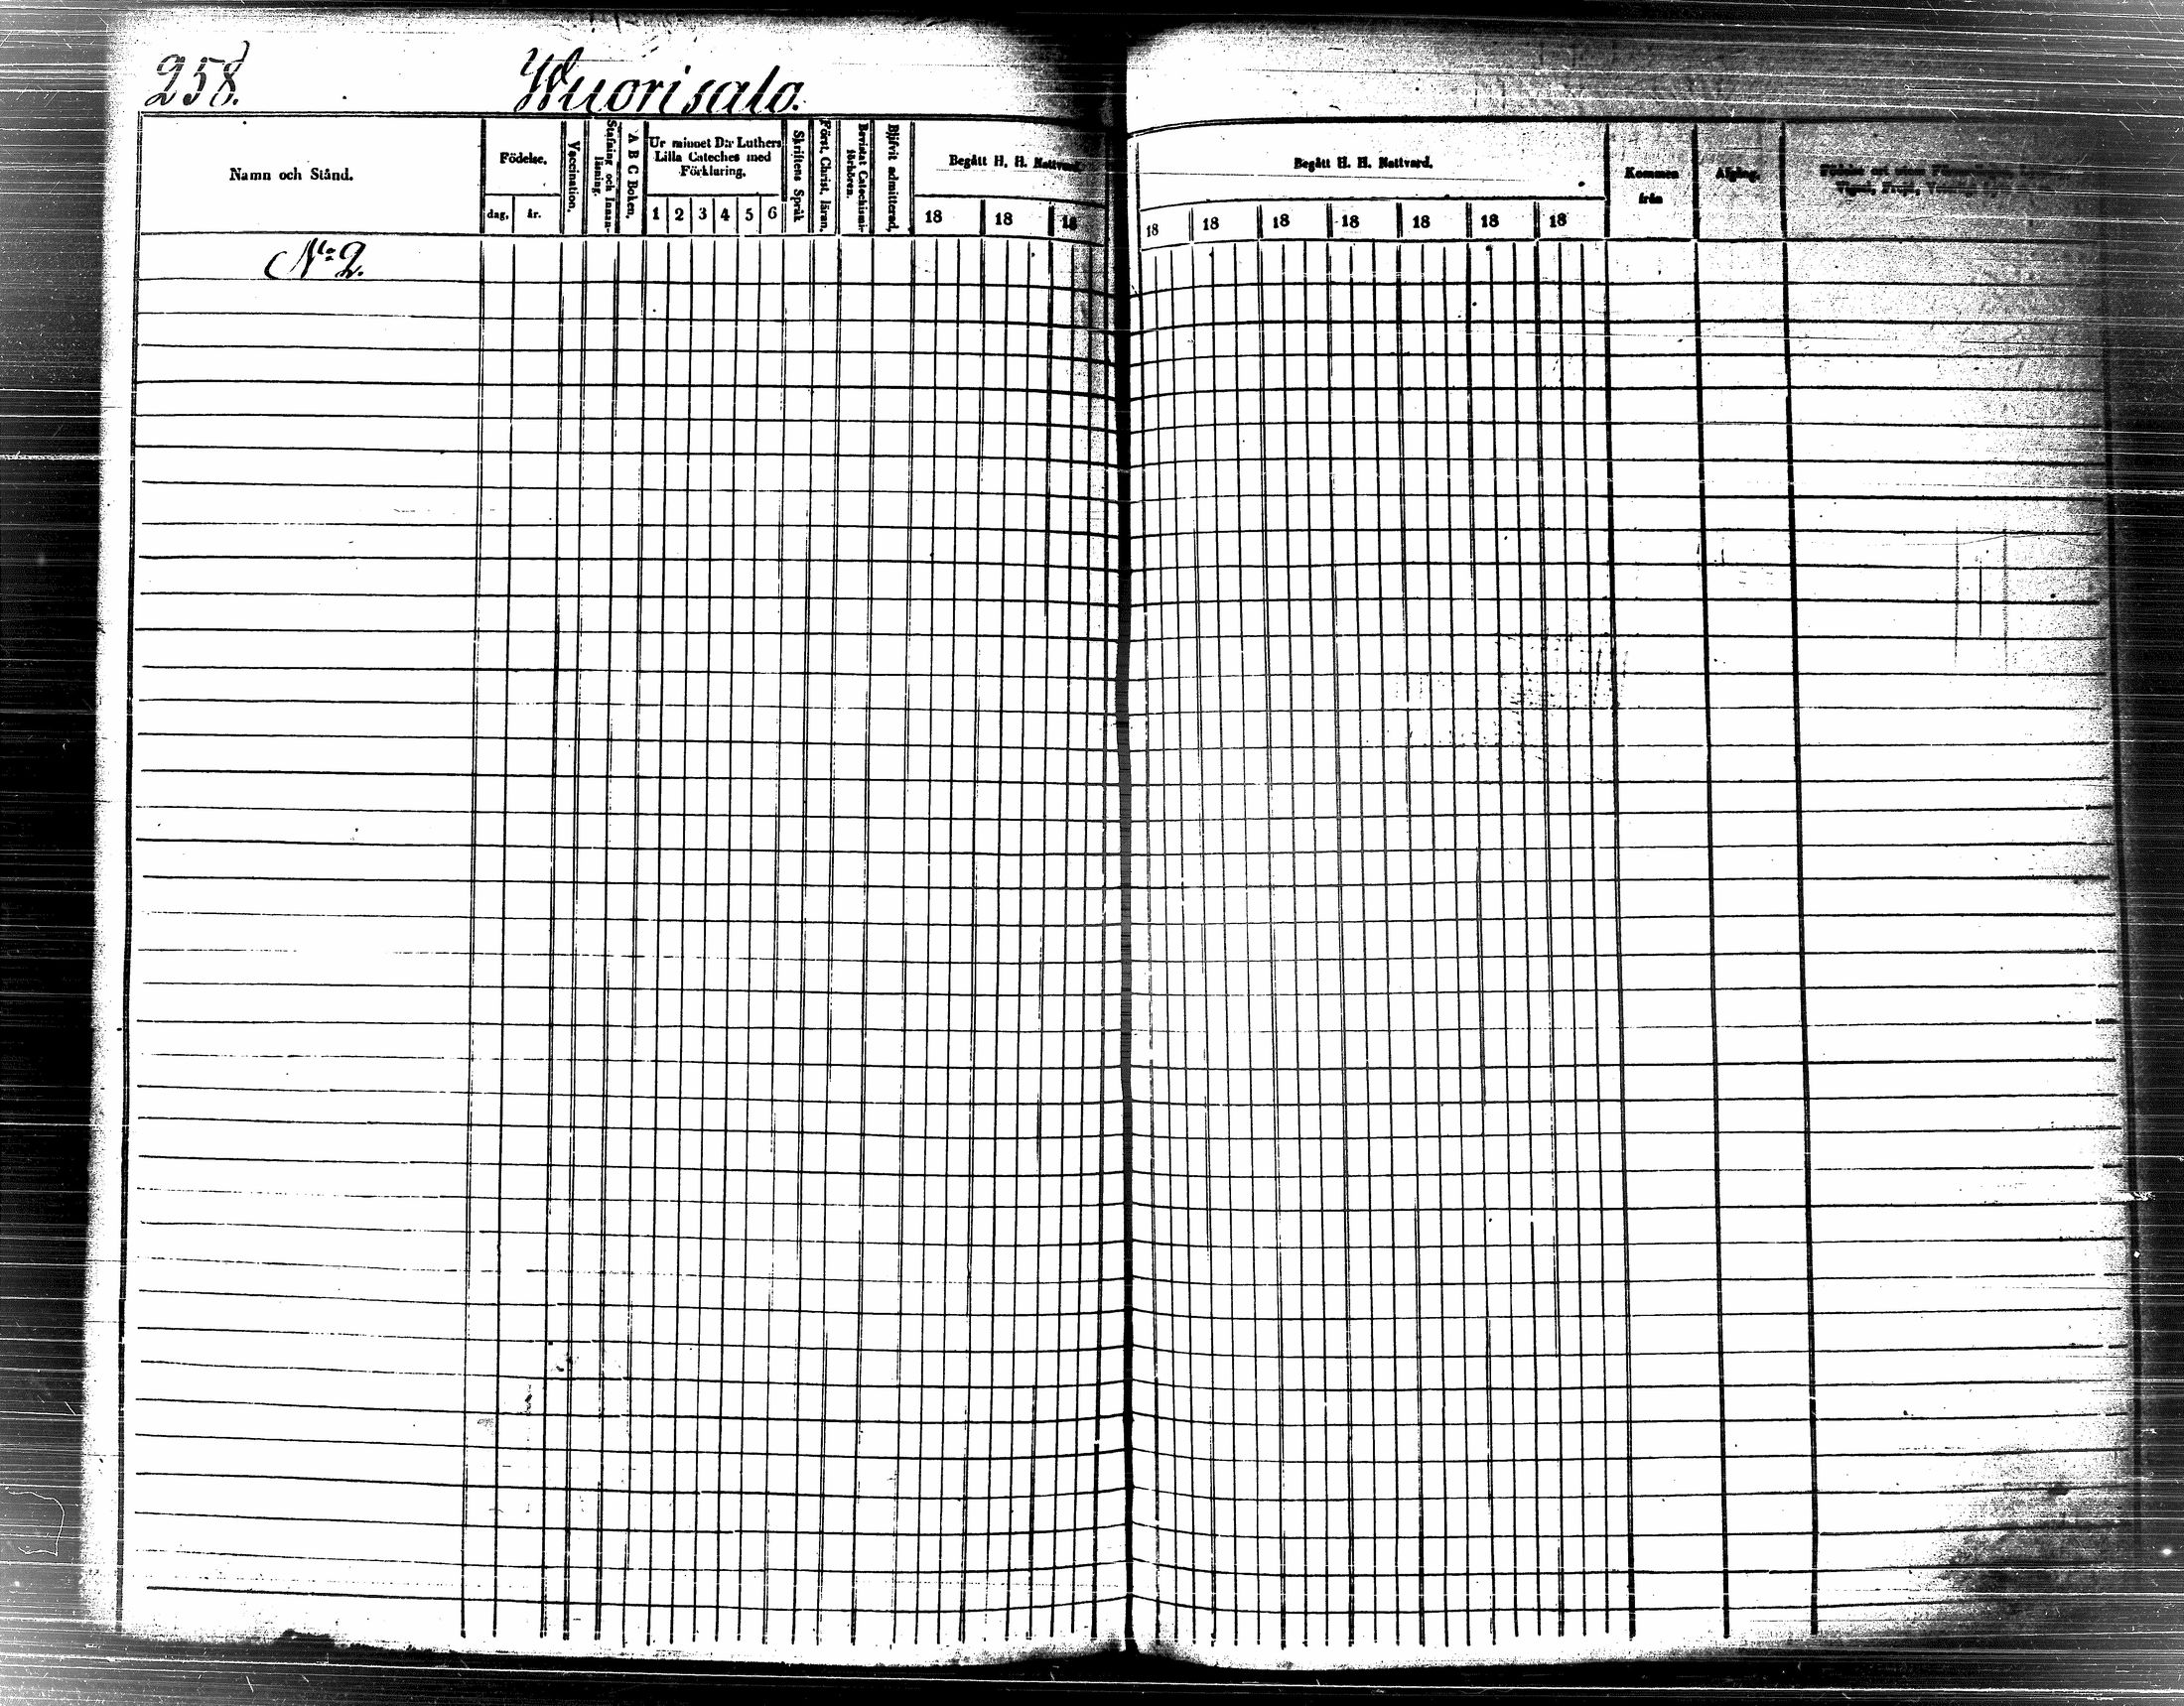 258.
Wuorisalo.
Namn och Stånd.
Födelse.
dag.
år.
Vaccination.
Stafning och Innan-
läsning.
A B C Boken.
Ur minnet D:r Luthers
Lilla Cateches med
Förklaring.
1 2 3 4 5 6
Skriftens Språk
Först. Christ. läran.
Bevistat Catechismi-
förhören.
Blifvit admitterad.
Begått H. H. Nattvard.
18 18 18
Begått H. H. Nattvard.
18 18 18 18 18 18 18
Kommen
från
Afgång.
N:o 2.